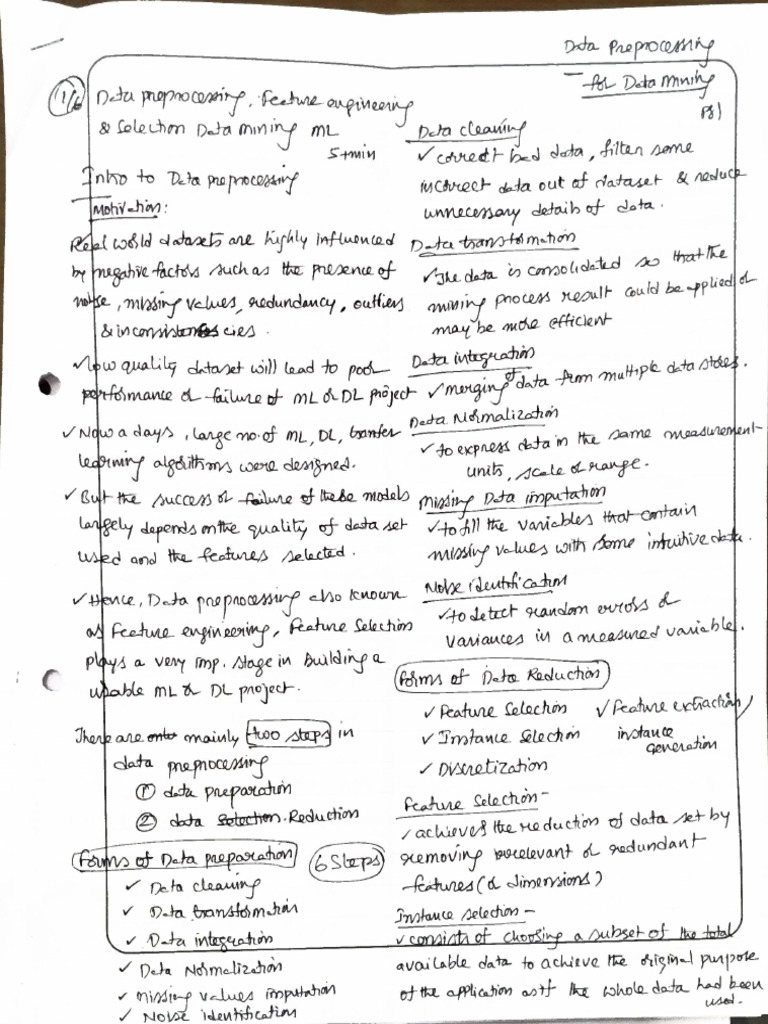 Data Preprocessing
- for Data Mining
P81
1/6
Data preprocessing, Feature engineering
& Selection Data mining ML
5+min
Intro to Data preprocessing
Motivation:
Real world datasets are highly influenced
by negative factors such as the presence of
noise, missing values, redundancy, outliers
& inconsistencies.
✓ Low quality dataset will lead to poor
performance or failure of ML or DL project
✓ Now a days, large no. of ML, DL, transfer
learning algorithms were designed.
✓ But the success or failure of these models
largely depends on the quality of data set
used and the features selected.
✓ Hence, Data preprocessing also known
as Feature engineering, Feature Selection
plays a very imp. stage in building a
usable ML or DL project.
There are mainly two steps in
data preprocessing
① data preparation
② data Selection. Reduction
Forms of Data preparation 6 Steps
✓ Data cleaning
✓ Data transformation
✓ Data integration
✓ Data Normalization
✓ missing values imputation
✓ Noise identification
Data cleaning
✓ correct bad data, filter some
incorrect data out of dataset & reduce
unnecessary details of data.
Data transformation
✓ The data is consolidated so that the
mining process result could be applied or
may be more efficient
Data integration
✓ merging of data from multiple data stores.
Data Normalization
✓ to express data in the same measurement
units, scale or range.
Missing Data imputation
✓ to fill the variables that contain
missing values with some intuitive data.
Noise identification
✓ to detect random errors or
variances in a measured variable.
Forms of Data Reduction
✓ Feature Selection ✓ Feature extraction/
✓ Instance Selection instance
generation
✓ Discretization
Feature Selection -
✓ achieves the reduction of data set by
removing irrelevant or redundant
features (or dimensions)
Instance selection -
✓ consists of choosing a subset of the total
available data to achieve the original purpose
of the application as if the whole data had been
used.